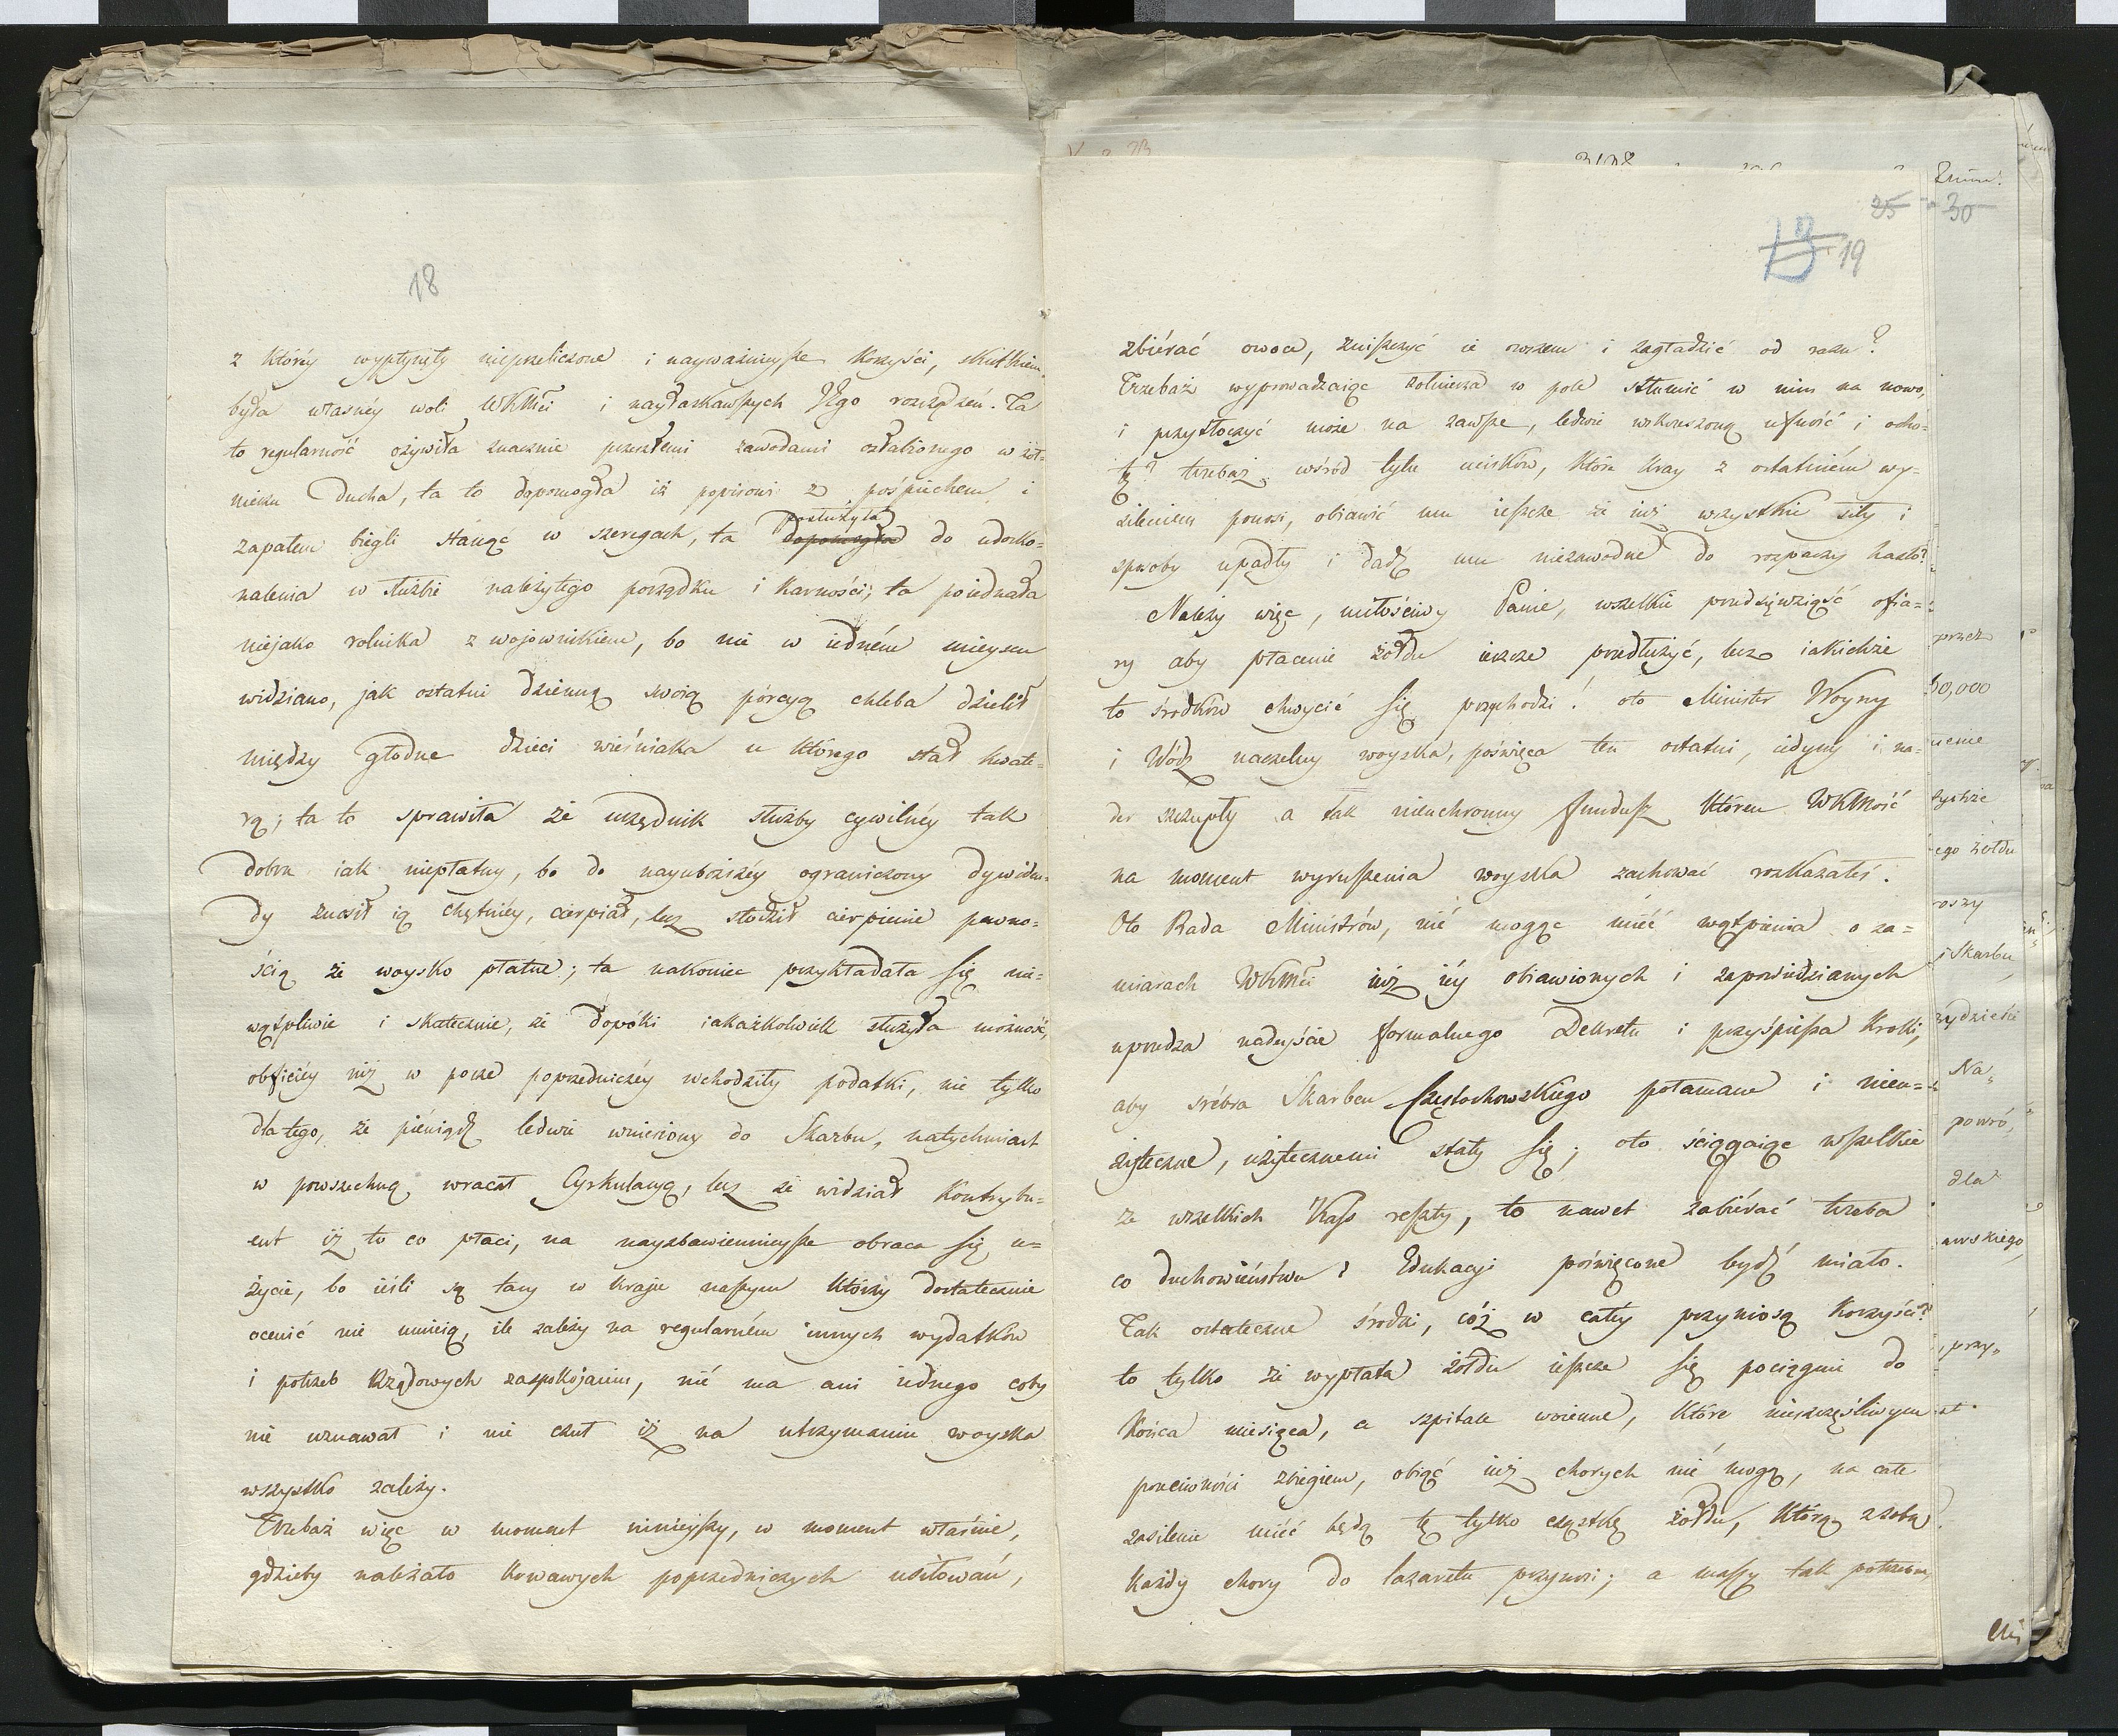 18
z któréy wypłynęły nieprzeliczone i nayważnieysze korzyści, skutkiem
była własnéy woli WKMći i nayłaskawszych Jego rozrządzeń. Ta
to regularność ożywiła znacznie przeszłemi zawodami osłabionego w żoł-
nierzu Ducha, ta to dopomogła iż popisowi z pośpiechem i
zapałem biegli stanąć w szeregach, ta dopomogła posłużyła do udosko-
nalenia w służbie należytego porządku i karności; ta poiednała
niejako rolnika z wojownikiem, bo nie w iedném mieyscu
widziano, jak ostatni dzienną swoią pórcyą chleba dzielił
między głodne dzieci wieśniaka u którego stał kwate-
rą; ta to sprawiła że urzędnik służby cywilnéy tak
dobrze iak niepłatny, bo do nayuboższéy ograniczony dywiden-
dy znosił ią chętniéy, cierpiał, lecz słodził cierpienie pewno-
ścią że woysko płatne; ta nakoniec przykładała się nie-
wątpliwie i skutecznie, że dopóki iakażkolwiek służyła możność,
obficiéy niż w porze poprzedniczéy wchodziły podatki, nie tylko
dla tego, że pieniądz ledwie wniesiony do Skarbu, natychmiast
w powszechną wracał Cyrkulacyą, lecz że widział Kontrybu-
ent iż to co płaci, na nayzbawiennieysze obraca się u-
życie, bo ieśli są tacy w kraju naszym którzy dostatecznie
ocenić nie umieią, ile zależy na regularném innych wydatków
i potrzeb Rządowych zaspokojeniu, nié ma ani iednego coby
nie uznawał i nie czuł iż na utrzymaniu woyska
wszystko zależy.
Trzebaż więc w moment ninieyszy, w moment właśnie,
gdzieby należało krwawych poprzedniczych usiłowań,
25 30
19
zbiérać owoce, zniszczyć ie owszem i zagładzić od razu?
Trzebaż wyprowadzaiąc żołnierza w pole stłumić w nim na nowo,
i przytłoczyć może na zawsze, ledwie wskrzeszoną ufność i ocho-
tę? trzebaż wśród tylu ucisków, które kray z ostatniém wy-
sileniem ponosi, obiawić mu ieszcze że iuż wszystkie siły i
sposoby upadły i dadź mu niezawodne do rozpaczy hasło?
Należy więc, miłościwy Panie, wszelkie przedsięwziąść ofia-
ry aby płacenie żołdu ieszcze przedłużyć, lecz iakichże
to środków chwycić się przychodzi! oto Minister Woyny
i Wódz naczelny woyska, poświęca ten ostatni, iedyny i na-
der szczupły a tak nieuchronny fundusz któren WKMość
na moment wyruszenia woyska zachować rozkazałeś.
Oto Rada Ministrów, nié mogąc miéć wątpienia o za-
miarach WKMći iuż iéy obiawionych i zapowiedzianych
uprzedza nadeyście formalnego Dekretu i przyśpiesza kroki,
aby srébra Skarbcu Częstochowskiego połamane i nieu-
żyteczne, użytecznemi stały się; oto ściągaiąc wszelkie
ze wszelkich Kass reszty, to nawet zabiérać trzeba
co duchowieństwu i Edukacji poświęcone bydź miało.
Tak ostateczne środki, cóż w całéy przyniosą korzyści?
to tylko że wypłata żołdu ieszcze się pociągnie do
Końca miesiąca, a szpitale woienne, które nieszczęśliwym
przeciwności zbiegiem, obiąć iuż chorych nié mogą, na całe
zasilenie miéć będą tę tylko cząstkę żołdu, którą z sobą
każdy chory do lazaretu przynosi; a massy tak potrzebne
przez
50,000
ucenie
tychże
ego żołdu
roszy
i Skarbu
Na
powró,
dla
awskiego
przy